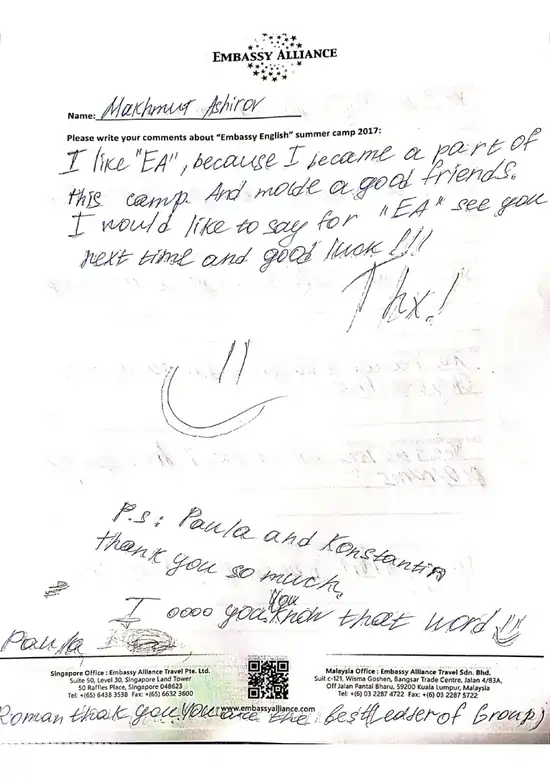 EMBASSY ALLIANCE
Name: Makhmut Ashirov
Please write your comments about "Embassy English" summer camp 2017:
I like "EA", because I became a part of
this camp. And made a good friends.
I would like to say for "EA" see you
next time and good luck!!!
Thx!
P.S: Paula and Konstantin
thank you so much,
You
I oooo you know that word
Paula
Singapore Office : Embassy Alliance Travel Pte. Ltd.
Suite 50, Level 30, Singapore Land Tower
50 Raffles Place, Singapore 048623
Tel: +(65) 6438 3538 Fax: +(65) 6632 3600
www.embassyalliance.com
Malaysia Office : Embassy Alliance Travel Sdn. Bhd.
Suit c-121, Wisma Goshen, Bangsar Trade Centre, Jalan 4/83A,
Off Jalan Pantai Bharu, 59200 Kuala Lumpur, Malaysia
Tel: +(6) 03 2287 4722 Fax: +(6) 03 2287 5722
Roman thak you. You are the best(Leaser of Group)